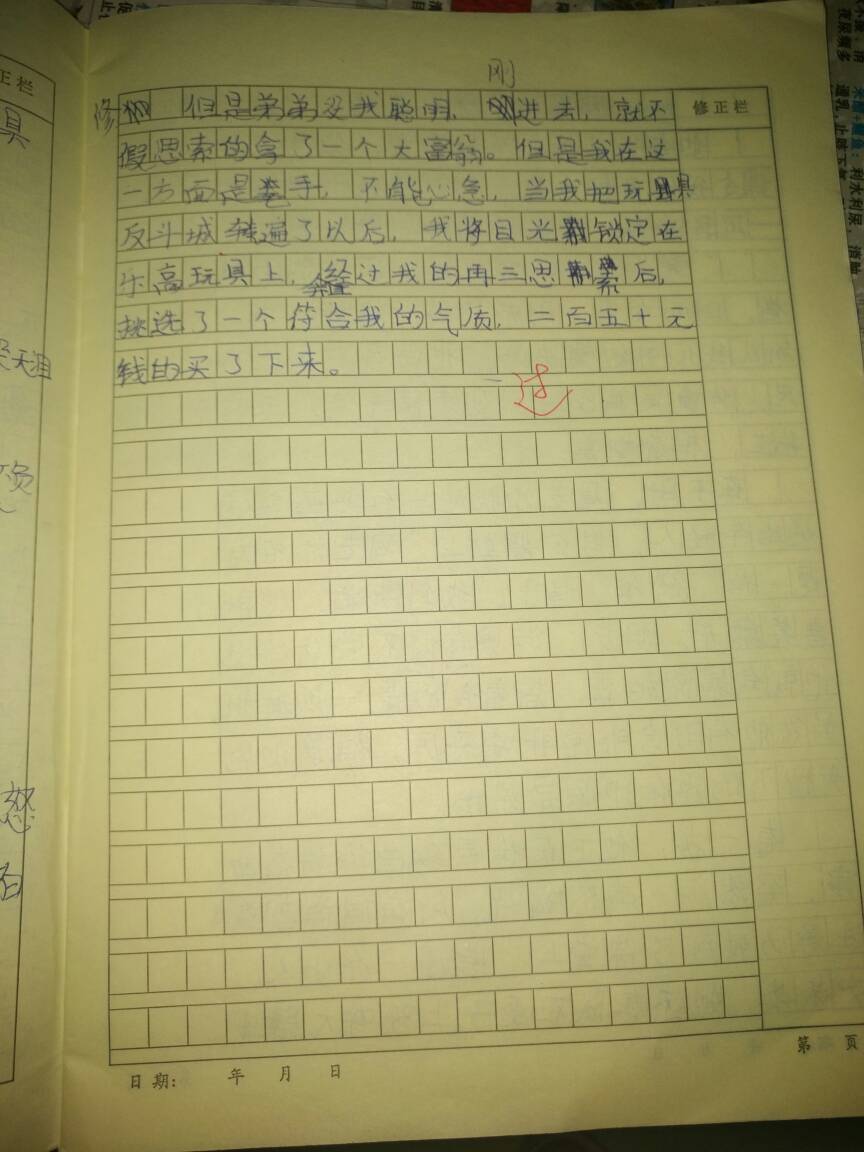 刚
修 但是弟弟没我聪明，进去，就不 修正栏
假思索的拿了一个大富翁。但是我在这
一方面是老手，不能心急，当我把玩具
反斗城转遍了以后，我将目光锁定在
乐高玩具上，经过我的再三思索后，
挑选了一个符合我的气质，二百五十元
钱的买了下来。
过
日期： 年 月 日
第 页
正栏
具
天涯
负
怒